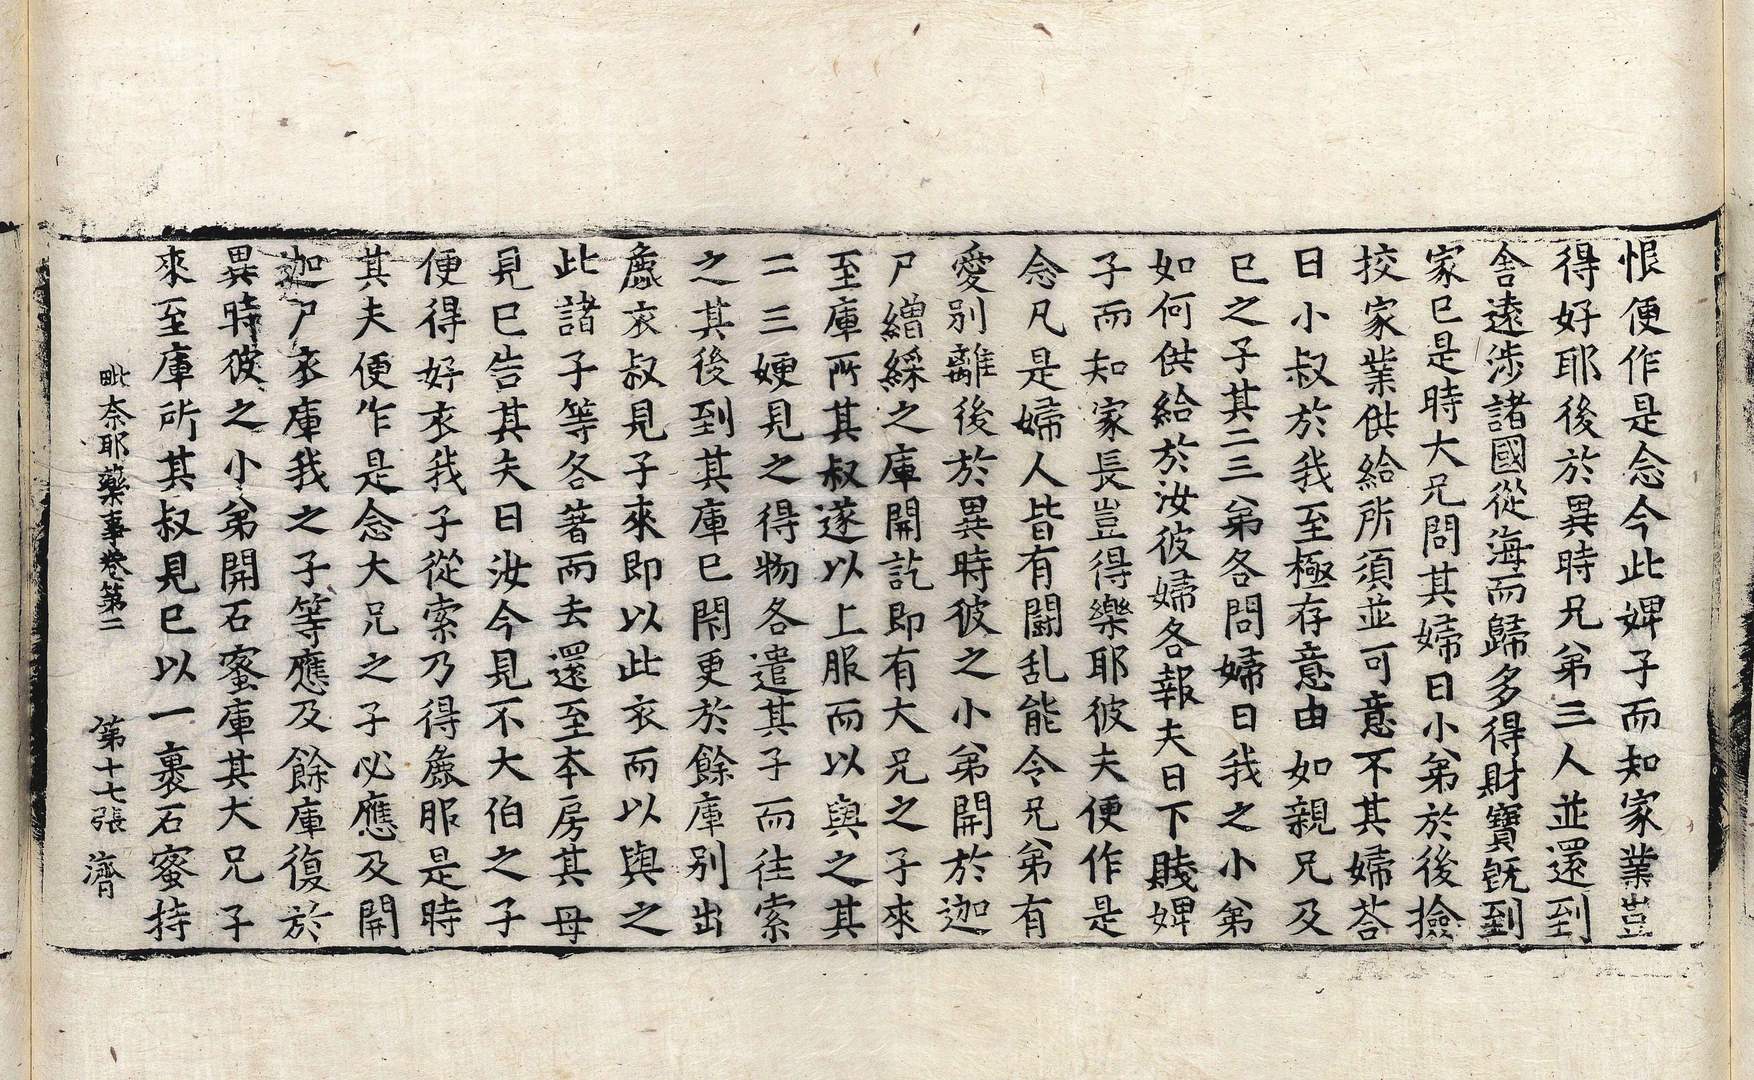 恨便作是念今此婢子而知家業豈
得好耶後於異時兄弟三人並還到
舎遠涉諸國從海而歸多得財寶旣到
家巳是時大兄問其婦曰小弟於後撿
挍家業供給所須並可意不其婦荅
曰小叔於我至極存意由如親兄及
巳之子其二三弟各問婦曰我之小弟
如何供給於汝彼婦各報夫曰下賤婢
子而知家長豈得樂耶彼夫便作是
念凡是婦人皆有鬪乱能令兄弟有
愛別離後於異時彼之小弟開於迦
尸繒綵之庫開訖即有大兄之子來
至庫所其叔遂以上服而以與之其
二三㛐見之得物各遣其子而往索
之其後到其庫巳閇更於餘庫別出
麁衣叔見子來即以此衣而以與之
此諸子等各著而去還至本房其母
見巳告其夫曰汝今見不大伯之子
便得好衣我子從索乃得麁服是時
其夫便作是念大兄之子必應及開
迦尸衣庫我之子等應及餘庫復於
異時彼之小弟開石蜜庫其大兄子
來至庫所其叔見巳以一裹石蜜持
毗奈耶藥事卷第二　第十七張　濟